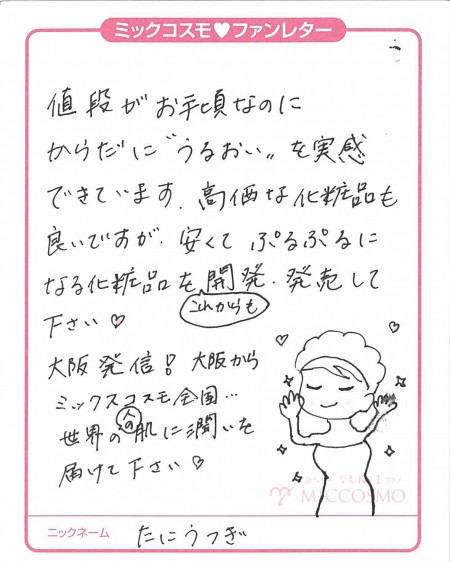 ミックコスモ♥ファンレター
値段がお手頃なのに
からだに〝うるおい〟を実感
できています。高価な化粧品も
良いですが、安くてぷるぷるに
なる化粧品をこれからも開発・発売して
下さい♡
大阪発信！大阪から
ミックスコスモ全国…
世界の人の肌に潤いを
届けて下さい♡
MICCOSMO
ニックネーム たにうつぎ